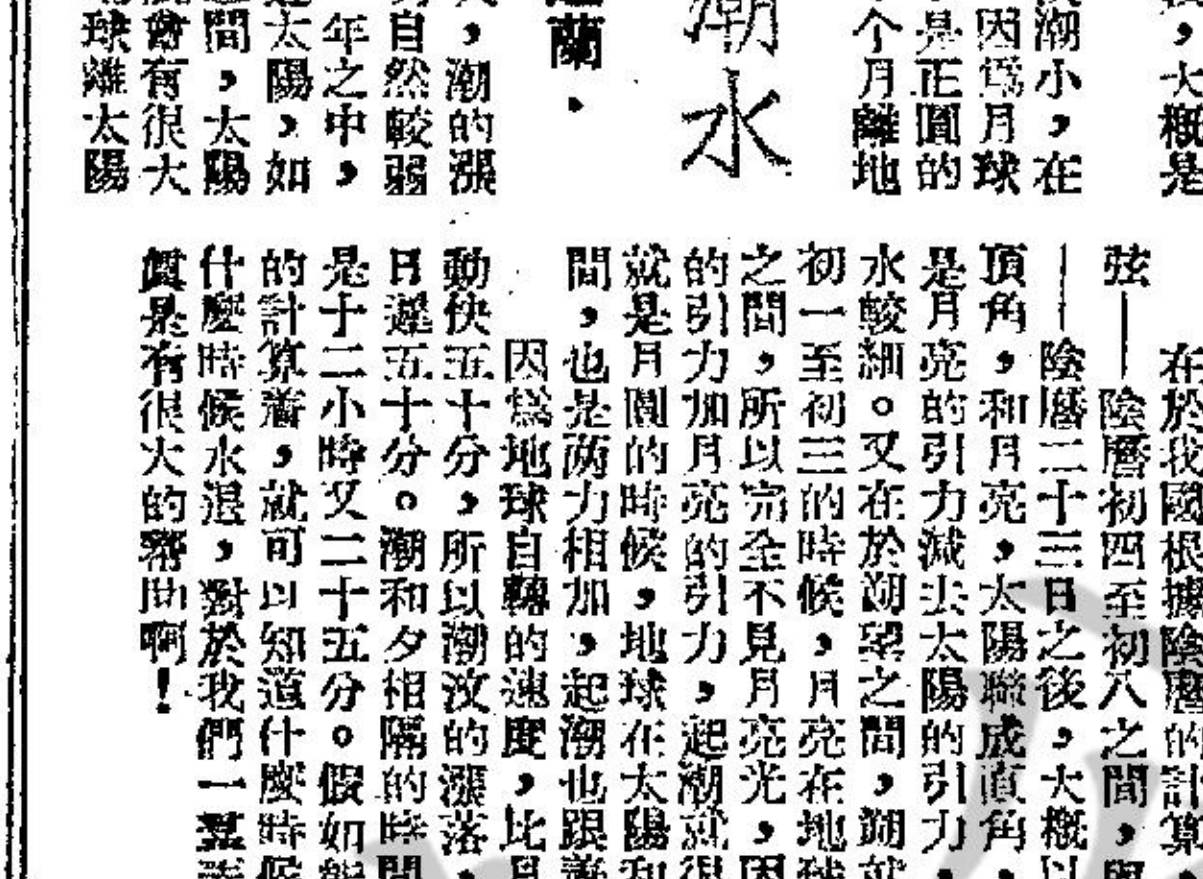 ，大概是
潮小，在
因爲月球
是正圓的
个月離地
潮水
蘭．
，潮的漲
自然較弱
年之中，
太陽，如
間，太陽
會有很大
球離太陽
在於我國根據陰曆的計算，
弦——陰曆初四至初八之間，與
——陰曆二十三日之後，大概以
頂角，和月亮，太陽聯成直角，
是月亮的引力減去太陽的引力，
水較細。又在於朔望之間，潮就
初一至初三的時候，月亮在地球
之間，所以完全不見月亮光，因
的引力加月亮的引力，起潮就很
就是月圓的時候，地球在太陽和
間，也是兩力相加，起潮也跟着
因爲地球自轉的速度，比月
動快五十分，所以潮汐的漲落，
日遲五十分。潮和夕相隔的時間
是十二小時又二十五分。假如能
的計算着，就可以知道什麼時候
什麼時候水退，對於我們一羣
真是有很大的幫助啊！